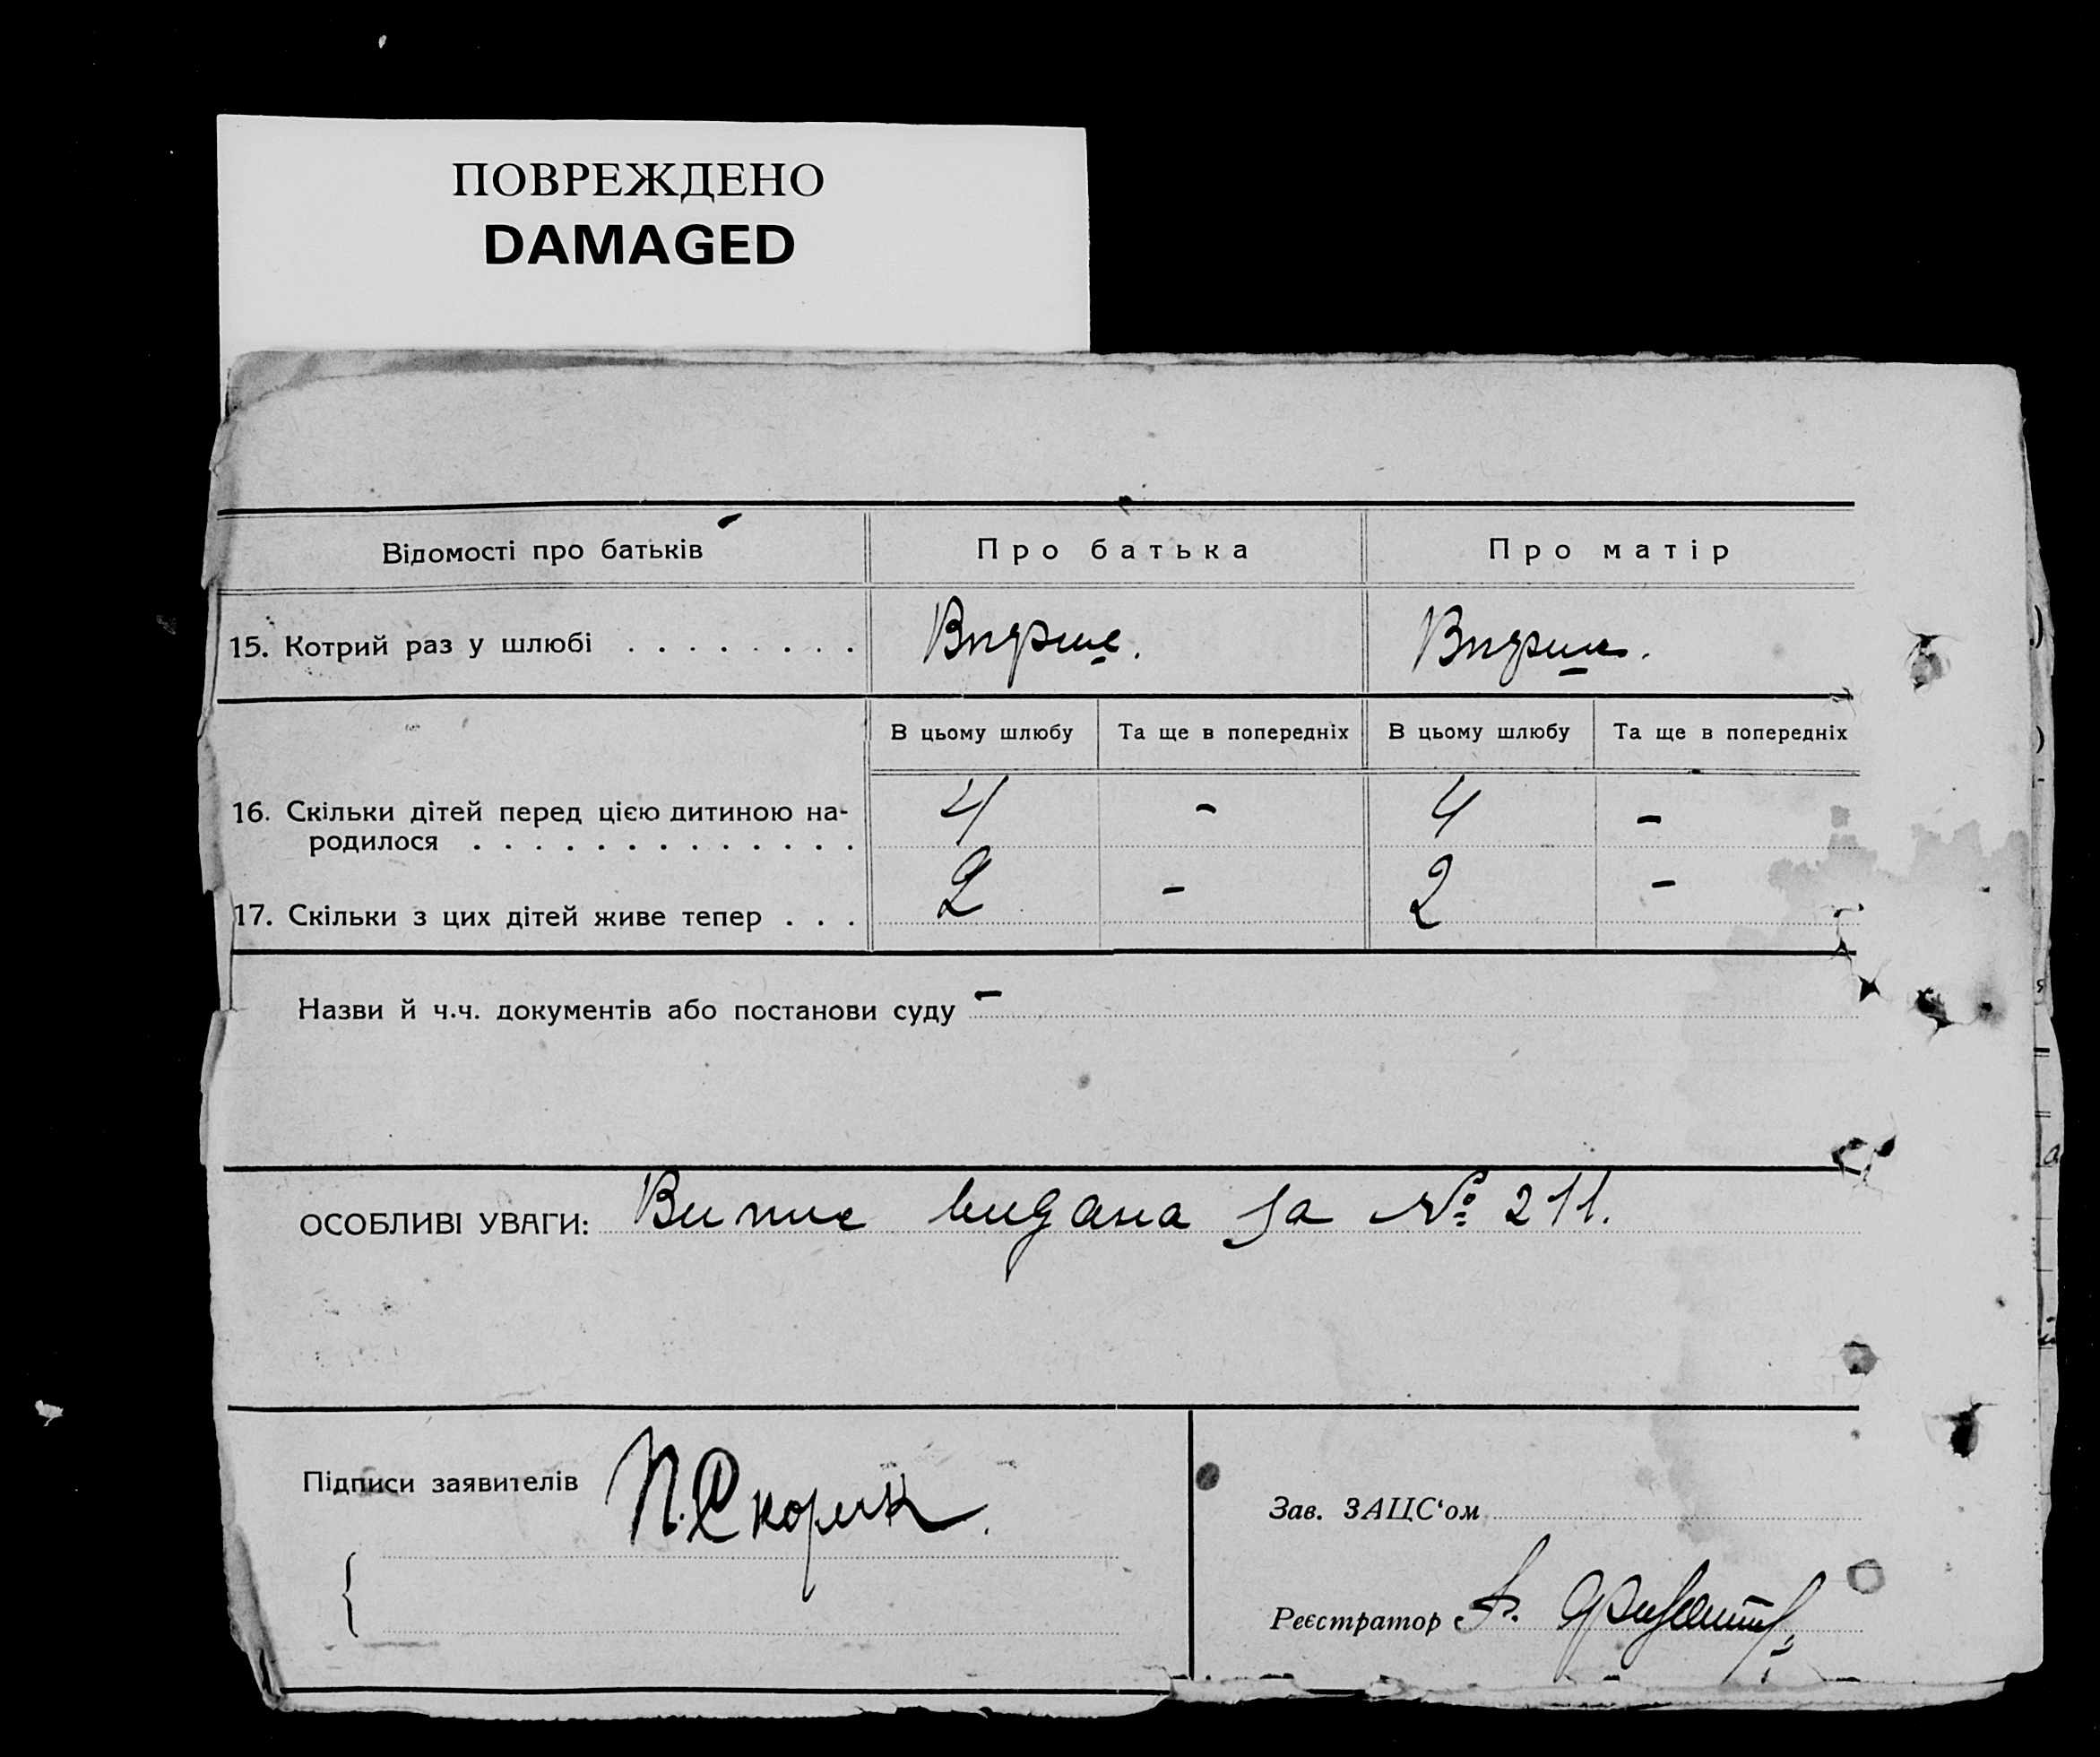 ПОВРЕЖДЕНО
DAMAGED
Відомості про батьків
Про батька
Про матір
15. Котрий раз у шлюбі . . . . . . . .
Вперше.
Вперше.
В цьому шлюбу
Та ще в попередніх
В цьому шлюбу
Та ще в попередніх
16. Скільки дітей перед цією дитиною на-
родилося . . . . . . . . . . . . .
4 - 4 -
17. Скільки з цих дітей живе тепер . . .
2 - 2 -
Назви й ч.ч. документів або постанови суду -
ОСОБЛИВІ УВАГИ: Випис видана за № 211.
Підписи заявителів П. Скорик.
Зав. ЗАЦС‘ом
Реєстратор А.